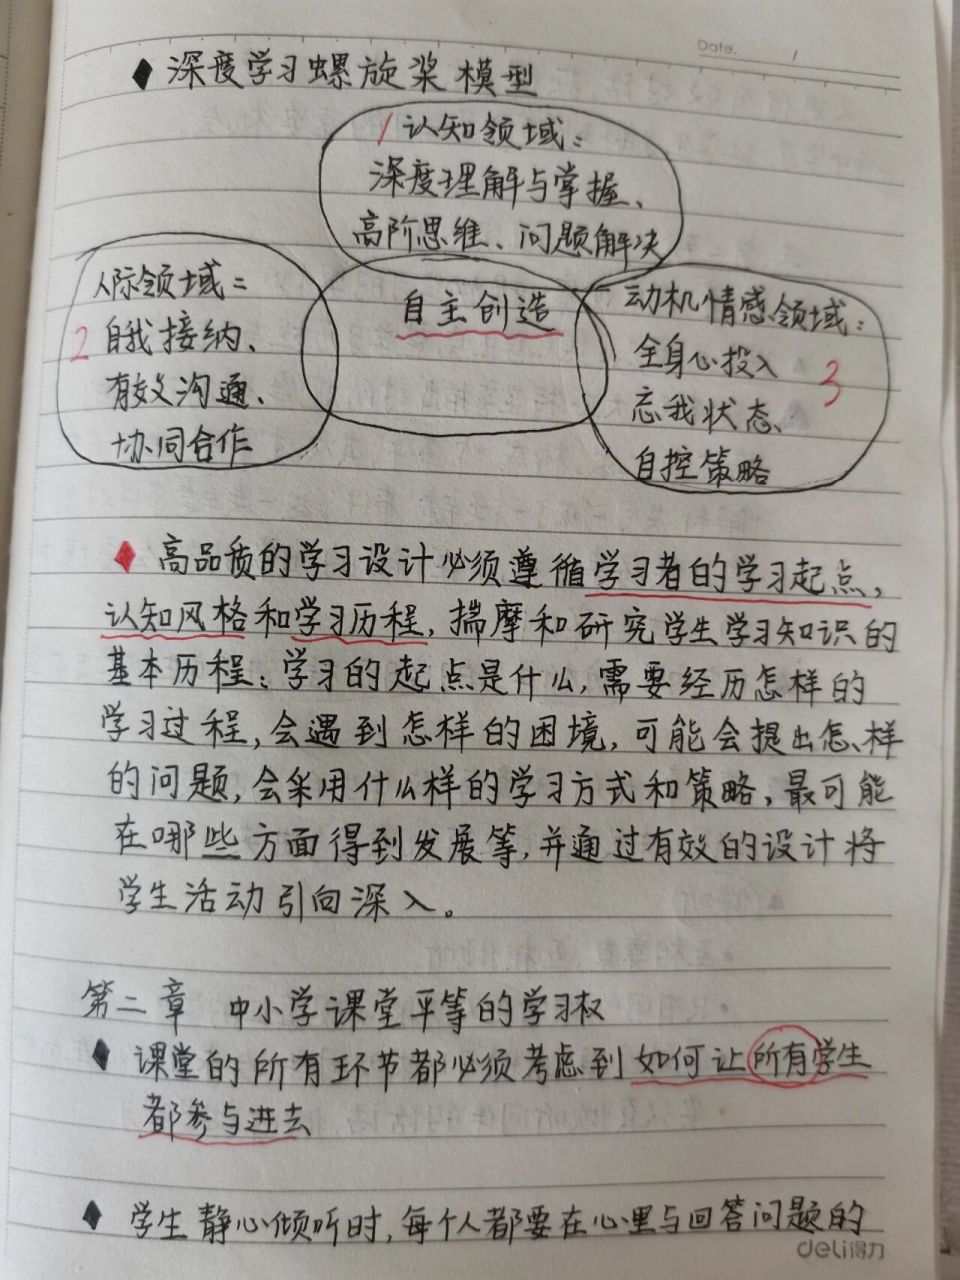 Date.
◆ 深度学习螺旋桨模型
1 认知领域:
深度理解与掌握、
高阶思维、问题解决
人际领域:
2 自我接纳、
有效沟通、
协同合作
自主创造
动机情感领域:
全身心投入
3
忘我状态、
自控策略
◆ 高品质的学习设计必须遵循学习者的学习起点,
认知风格和学习历程, 揣摩和研究学生学习知识的
基本历程: 学习的起点是什么, 需要经历怎样的
学习过程, 会遇到怎样的困境, 可能会提出怎样
的问题, 会采用什么样的学习方式和策略, 最可能
在哪些方面得到发展等, 并通过有效的设计将
学生活动引向深入。
第二章 中小学课堂平等的学习权
◆ 课堂的所有环节都必须考虑到如何让所有学生
都参与进去
◆ 学生静心倾听时, 每个人都要在心里与回答问题的
deli得力